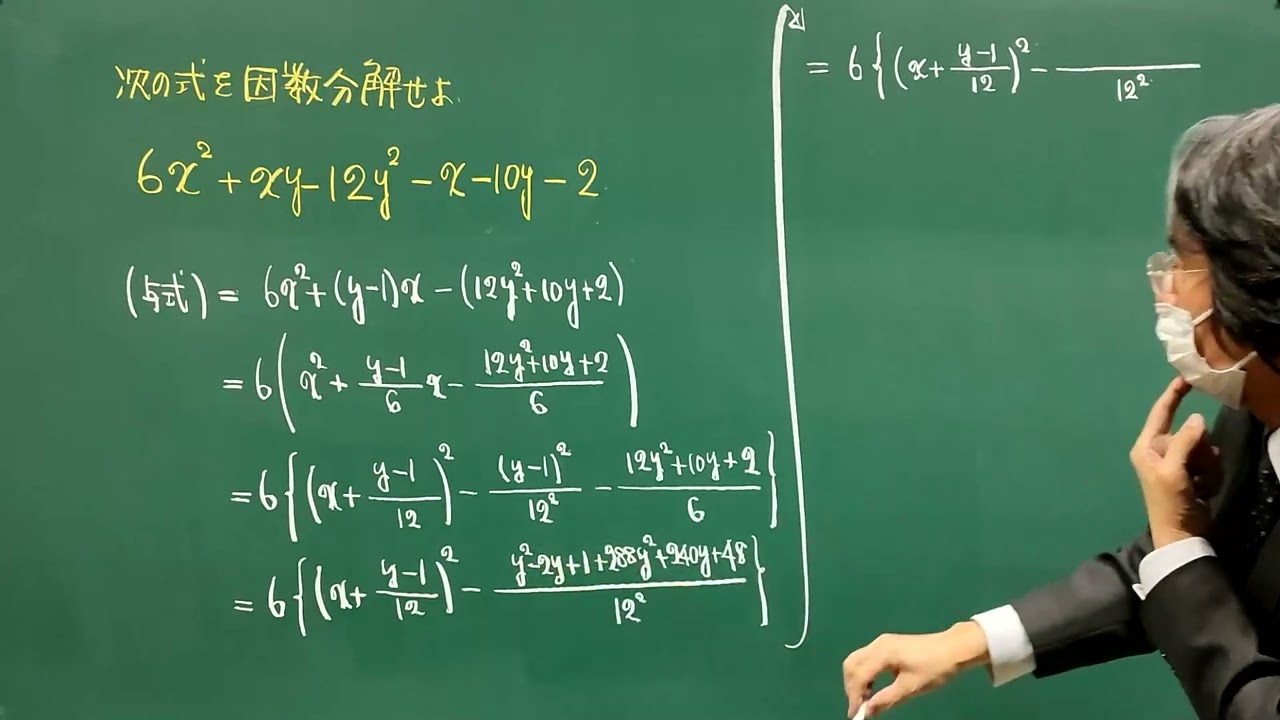 次の式を因数分解せよ.
6x² + xy - 12y² - x - 10y - 2
(与式) = 6x² + (y-1)x - (12y²+10y+2)
= 6( x² + \frac{y-1}{6} x - \frac{12y²+10y+2}{6} )
= 6{ (x + \frac{y-1}{12})² - \frac{(y-1)²}{12²} - \frac{12y²+10y+2}{6} }
= 6{ (x + \frac{y-1}{12})² - \frac{y²-2y+1+288y²+240y+48}{12²} }
= 6{ (x + \frac{y-1}{12})² - \frac{}{12²}